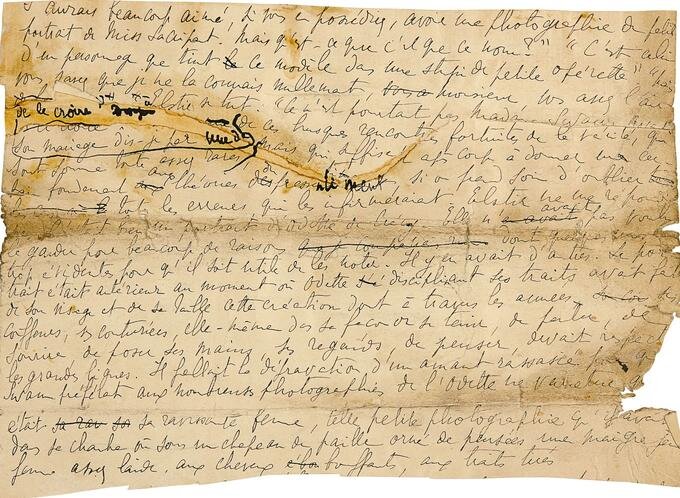 J'aurais beaucoup aimé, si vous en possédiez, avoir une photographie du petit
portrait de Miss Sacripant, mais qu'est-ce que c'est que ce nom ?" "C'est celui
d'un personnage que tint le modèle dans une stupide petite opérette"
vous savez que je ne la connais nullement monsieur vous avez l'air
de le croire" Elstir se tut. "Ce n'est pourtant pas Madame Swann
son mariage dis-je par une de ces brusques rencontres fortuites de la vérité, qui
sont somme toute assez rares, mais qui suffisent après coup à donner un cer
fondement aux théories des pressentiments, si on prend soin d'oublier
toutes les erreurs qui les infirmeraient. Elstir ne me répondit
portrait d'Odette de Crécy. Elle n'avait pas voulu
le garder pour beaucoup de raisons
trop évidentes pour qu'il soit utile de les noter. Il y en avait d'autres. Le por
trait était antérieur au moment où Odette disciplinant ses traits avait fait
de son visage et de sa taille cette création dont à travers les années,
coiffeurs, ses couturiers, elle-même dans sa façon de se tenir, de parler, de
sourire, de poser ses mains, ses regards, de penser, devait respecter
les grandes lignes. Il fallait la dépravation d'un amant rassasié pour que
Swann préférât aux nombreuses photographies de l'Odette ne varietur
était sa ravissante femme, cette petite photographie qu'il avait
dans sa chambre où sous un chapeau de paille orné de pensées une maigre jeune
femme assez laide, aux cheveux bouffants, aux traits tirés